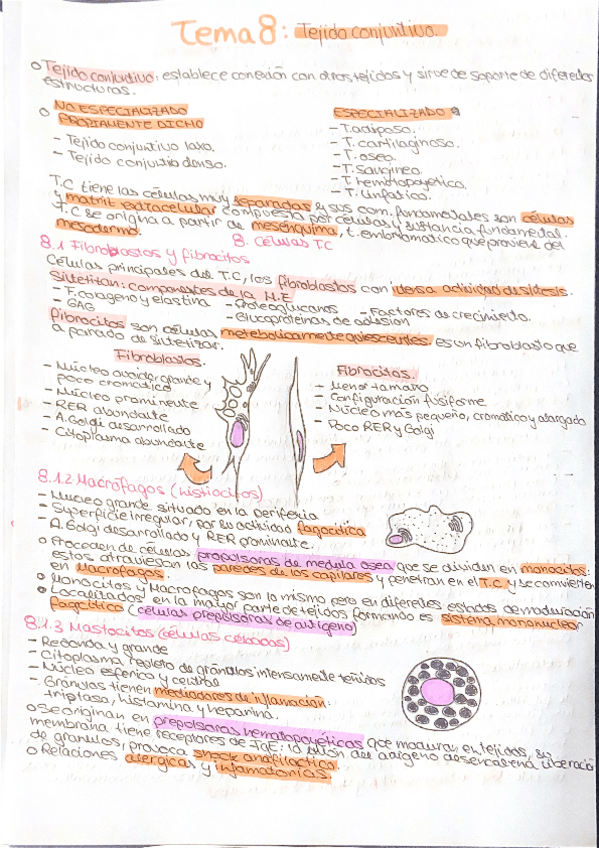 Tema 8: Tejido conjuntivo.
o Tejido conjuntivo: establece conexión con otros tejidos y sirve de soporte de diferentes
estructuras.
o NO ESPECIALIZADO
PROPIAMENTE DICHO
- Tejido conjuntivo laxo.
- Tejido conjuntivo denso.
ESPECIALIZADO
- T. adiposo.
- T. cartilaginoso.
- T. oseo.
- T. sangineo.
- T. hematopoyético.
- T. linfatico.
T.C tiene las células muy separadas y sus com. fundamentales son células
y matriz extracelular compuesta por células y sustancia fundamental.
T.C se origina a partir de mesénquima, t. embrionatico que proviene del
mesodermo.
8. Células TC
8.1 Fibroblastos y fibrocitos
Células principales del T.C, los fibroblastos con idensa actividad de sítesis.
Sintetitan: componentes de la M.E
- F. colageno y elastina
- Proteoglucanos
- Factores de crecimiento.
- GAG
- Glucoproteinas de adhesion
Fibrocitos son células metabolicamente quiescentes. es un fibroblasto que
a parado de sintetizar.
Fibroblastos.
- Núcleo ovoide, grande y
poco cromatico
- Núcleo prominente
- RER abundante
- A. Golgi desarrollado
- Citoplasma abundante
Fibrocitos.
- Menor tamaño
- Configuración fusiforme
- Núcleo más pequeño, cromático y alargado
- Poco RER y Golgi
8.1.2 Macrófagos (histiocitos)
- Nucleo grande situado en la periferia
- Superficie irregular, por su actividad fagocitica
- A. Golgi desarrollado y RER prominente.
o Proceden de células propulsoras de medula osea que se dividen en monocitos:
estos atraviesan las paredes de los capilares y penetran en el T.C. y se convierten
en Macrofagos.
o Monocitos y Macrofagos son lo mismo pero en diferentes estados de maduración
o Localitados en la mayor parte de tejidos formando es sistema mononuclear
fagocitico (células prepulsoras de antigeno)
8.1.3 Mastocitos (células cebadas)
- Redonda y grande
- Citoplasma repleto de gránulos intensamente teñidos
- Núcleo esferico y central
- Gránulos tienen mediadores de inflamación:
triptasa, histamina y heparina.
o Se originan en prepulsoras hematopoyéticas que maduran en tejidos, su
membrana tiene receptores de IgE: la unión del antígeno desencadena liberación
de granulos, provoca shock anafilactico.
o Relaciones alergicas y inflamatorias.